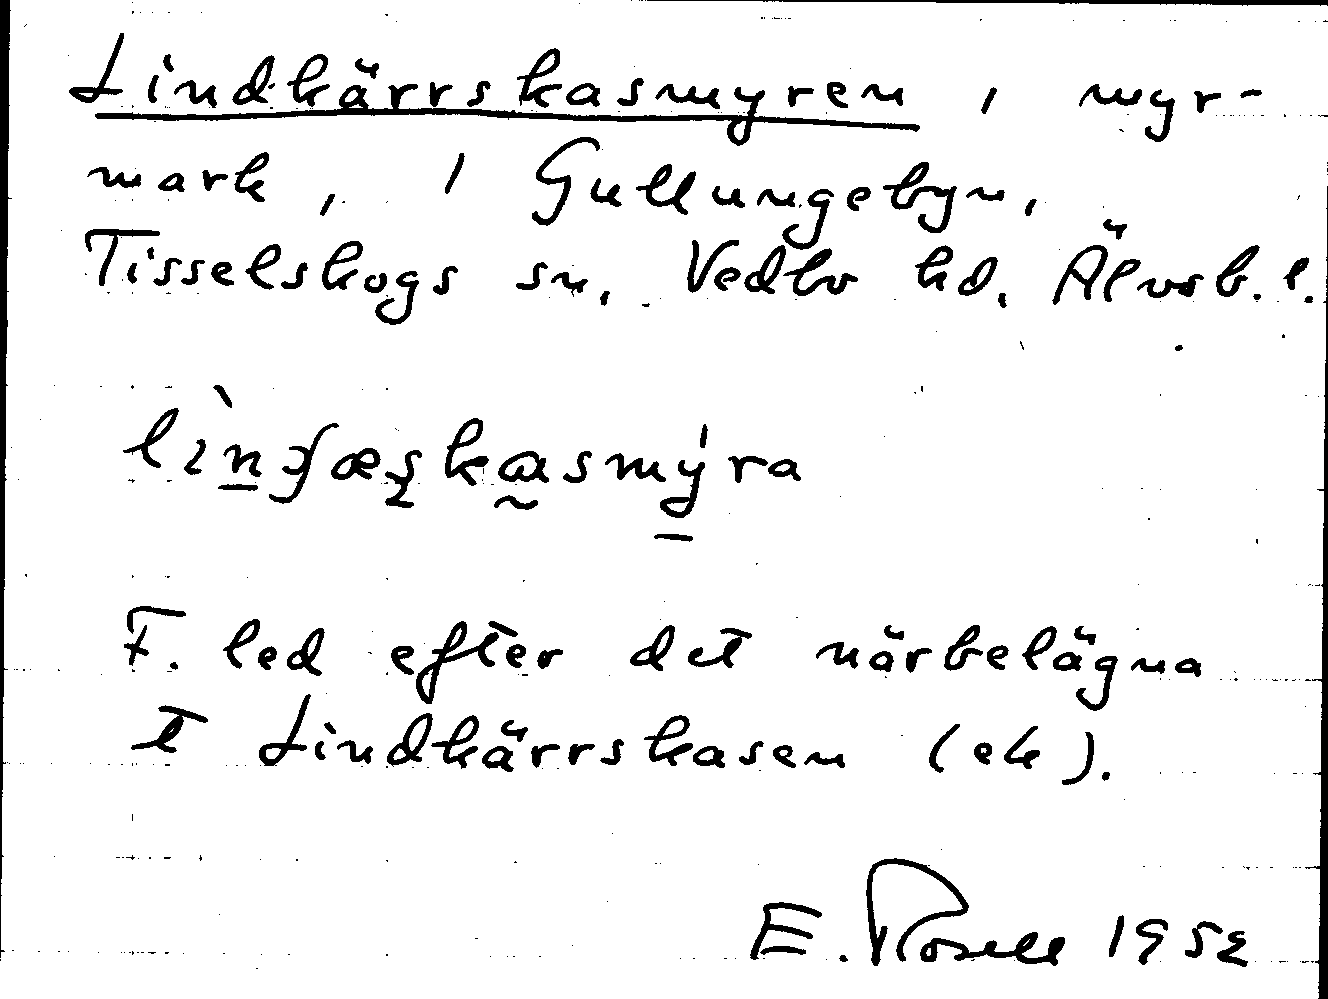 Lindkärrskasmyren, myr-
mark, 1 Gullungebyn,
Tisselskogs sn, Vedbo hd, Älvsb. l.
F. led efter det närbelägna
t Lindkärrskasen (ek).
E. Rosell 1952